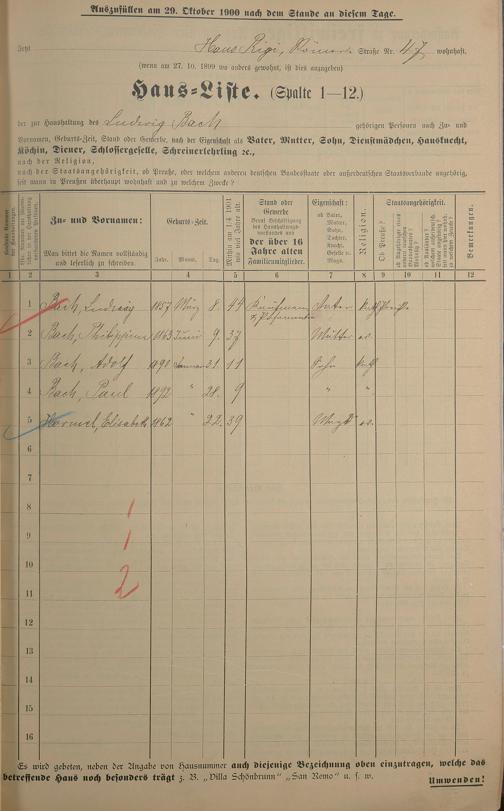 Auszufüllen am 29. Oktober 1900 nach dem Stande an diesem Tage.
Jetzt Haus Rigi, Römer Straße Nr. 47 wohnhaft.
(wenn am 27. 10. 1899 wo anders gewohnt, ist dies anzugeben)
Haus-Liste. (Spalte 1—12.)
der zur Haushaltung des Ludwig Bach gehörigen Personen nach Zu- und
Vornamen, Geburts-Zeit, Stand oder Gewerbe, nach der Eigenschaft als Vater, Mutter, Sohn, Dienstmädchen, Hausknecht,
Köchin, Diener, Schlossergeselle, Schreinerlehrling ec.,
nach der Religion,
nach der Staatsangehörigkeit, ob Preuße, oder welchem anderen deutschen Bundesstaate oder außerdeutschen Staatsverbande angehörig,
seit wann in Preußen überhaupt wohnhaft und zu welchem Zwecke?
Zu- und Vornamen:
Man bittet die Namen vollständig
und leserlich zu schreiben.
Geburts-Zeit.
Jahr. Monat. Tag.
Mithin am 1/4 1901
wie viel Jahre alt.
Stand oder
Gewerbe
der über 16
Jahre alten
Familienmitglieder.
Eigenschaft:
ob Vater,
Mutter,
Sohn,
Tochter,
Knecht,
Geselle u.
Magd.
Religion.
Staatsangehörigkeit.
Ob Preuße?
Bemerkungen.
2 3 4 5 6 7 8 9 10 11 12
1 Bach, Ludwig 1857 März 8. 44 Kaufmann Vater kath Preuße
2 Bach, Philippine 1863 Juni 9. 37 Mutter ev.
3 Bach, Adolf 1890 Januar 31. 11 Sohn kath
4 Bach, Paul 1892 " 28. 9 " "
5 Hormel, Elisabeth 1862 " 22. 39 Magd ev.
6
7
8 1
9 1
10
11 2
12
13
14
15
16
Es wird gebeten, neben der Angabe von Hausnummer auch diejenige Bezeichnung oben einzutragen, welche das
betreffende Haus noch besonders trägt z. B. „Villa Schönbrunn" „San Remo" u. s. w.
Umwenden!